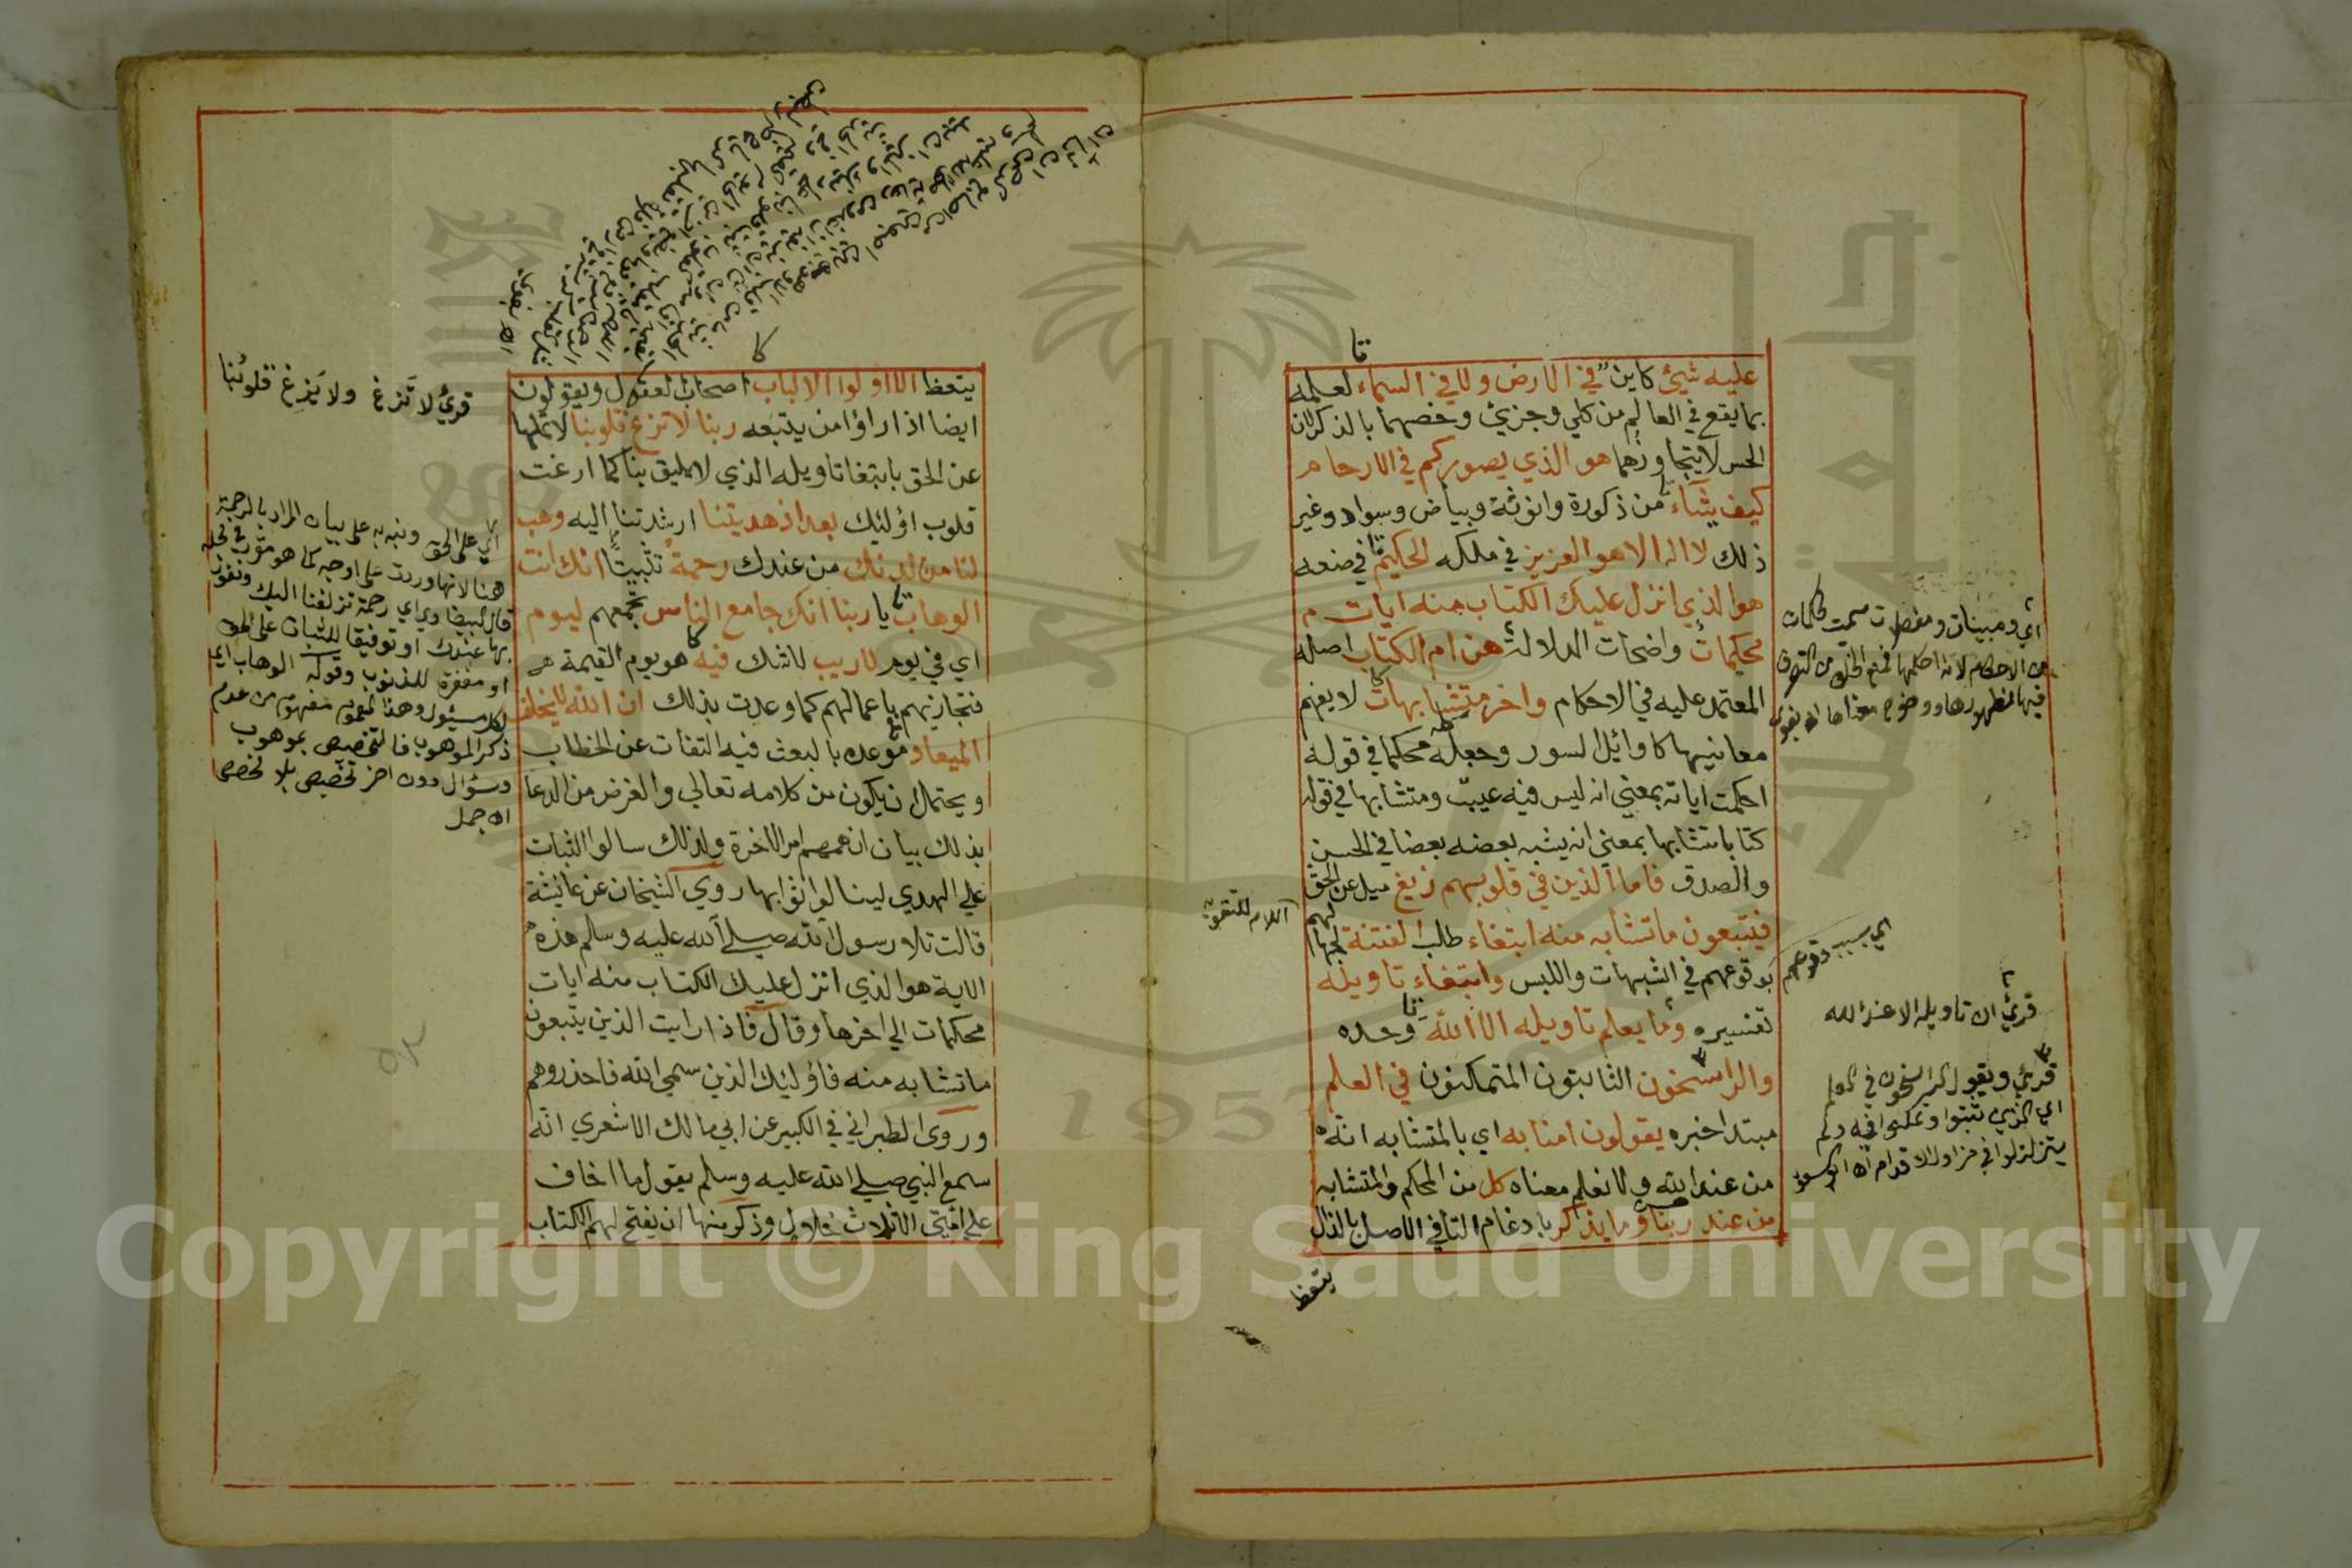 عليه شيئ كاين في الارض ولا في السماء لعلمه
بما يقع في العالم من كلي وجزئ وخصهما بالذكر لان
الحس لا يتجاوزهما هو الذي يصوركم في الارحام
كيف يشاء من ذكورة وانوثة وبياض وسواد وغير
ذلك لا اله الا هو العزيز في ملكه الحكيم في صنعه
هو الذي انزل عليك الكتاب منه ايات م
محكمات واضحات الدلالة هن ام الكتاب اصله
المعتمد عليه في الاحكام واخر متشابهات لا يفهم
معانيها كاوائل السور وجعله محكما في قوله
احكمت اياته بمعني انه ليس فيه عيب ومتشابها في قوله
كتابا متشابها بمعني انه يشبه بعضه بعضا في الحسن
والصدق فاما الذين في قلوبهم زيغ ميل عن الحق
فيتبعون ما تشابه منه ابتغاء طلب الفتنة لجهالهم
بوقوعهم في الشبهات واللبس وابتغاء تاويله
تفسيره وما يعلم تاويله الا الله وحده
والراسخون الثابتون المتمكنون في العلم
مبتدا خبره يقولون امنا به اي بالمتشابه انه
من عند الله ولا نعلم معناه كل من المحكم والمتشابه
من عند ربنا وما يذكر بادغام التا في الاصل بالذال
يتعظ
اي ومبينات ومفصلات سميت محكمات
من الاحكام لانه احكمها فمنع الخلق من التصرف
فيها لظهورها ووضوح معناها اه بغوي
اللام للتقوية
اي بسبب وقوعهم
قرئ ان تاويله الا عند الله
قرئ ويقول الراسخون في العلم
اي الذي ثبتوا وتمكنوا فيه ولم
يتزلزلوا في مزاول الاقدام اه ابو السعود
يتعظ الا اولوا الالباب اصحاب العقول ويقولون
ايضا اذا راؤا من يتبعه ربنا لا تزغ قلوبنا لا تملها
عن الحق بابتغا تاويله الذي لا يليق بنا كما ازغت
قلوب اؤليك بعد اذ هديتنا ارشدتنا اليه وهب
لنا من لدنك من عندك رحمة تثبيتا انك انت
الوهاب يا ربنا انك جامع الناس تجمعهم ليوم
اي في يوم لاريب لاشك فيه هو يوم القيمة
فتجازيهم باعمالهم كما وعدت بذلك ان الله لايخلف
الميعاد موعده بالبعث فيه التفات عن الخطاب
ويحتمل ان يكون من كلامه تعالي والغرض من الدعا
بذلك بيان ان همهم امر الاخرة ولذلك سالوا الثبات
علي الهدي لينالوا ثوابها روي الشيخان عن عائشة
قالت تلا رسول الله صلي الله عليه وسلم هذه
الاية هو الذي انزل عليك الكتاب منه ايات
محكمات الي اخرها وقال فاذا رايت الذين يتبعون
ما تشابه منه فاؤليك الذين سمي الله فاحذروهم
وروي الطبراني في الكبير عن ابي مالك الاشعري انه
سمع النبي صلي الله عليه وسلم يقول ما اخاف
علي امتي الا ثلاث خلال وذكر منها ان يفتح لهم الكتاب
قرئ لا تَزغ ولا يَزغ قلوبُنا
اي على الحق ونبه به على بيان المراد بالرحمة
هنا لانها وردت على اوجه كما هو مقرر في محله
قال البيضاوي اي رحمة تزلفنا اليك ونفوز
بها عندك او توفيقا للثبات على الحق
او مغفرة للذنوب وقوله الوهاب اي
لكل مسئول وهذا العموم مفهوم من عدم
ذكر الموهوب فالتخصيص بموهوب
وسؤال دون اخر تخصيص بلا مخصص
اه جمل
1957
Copyright © King Saud University